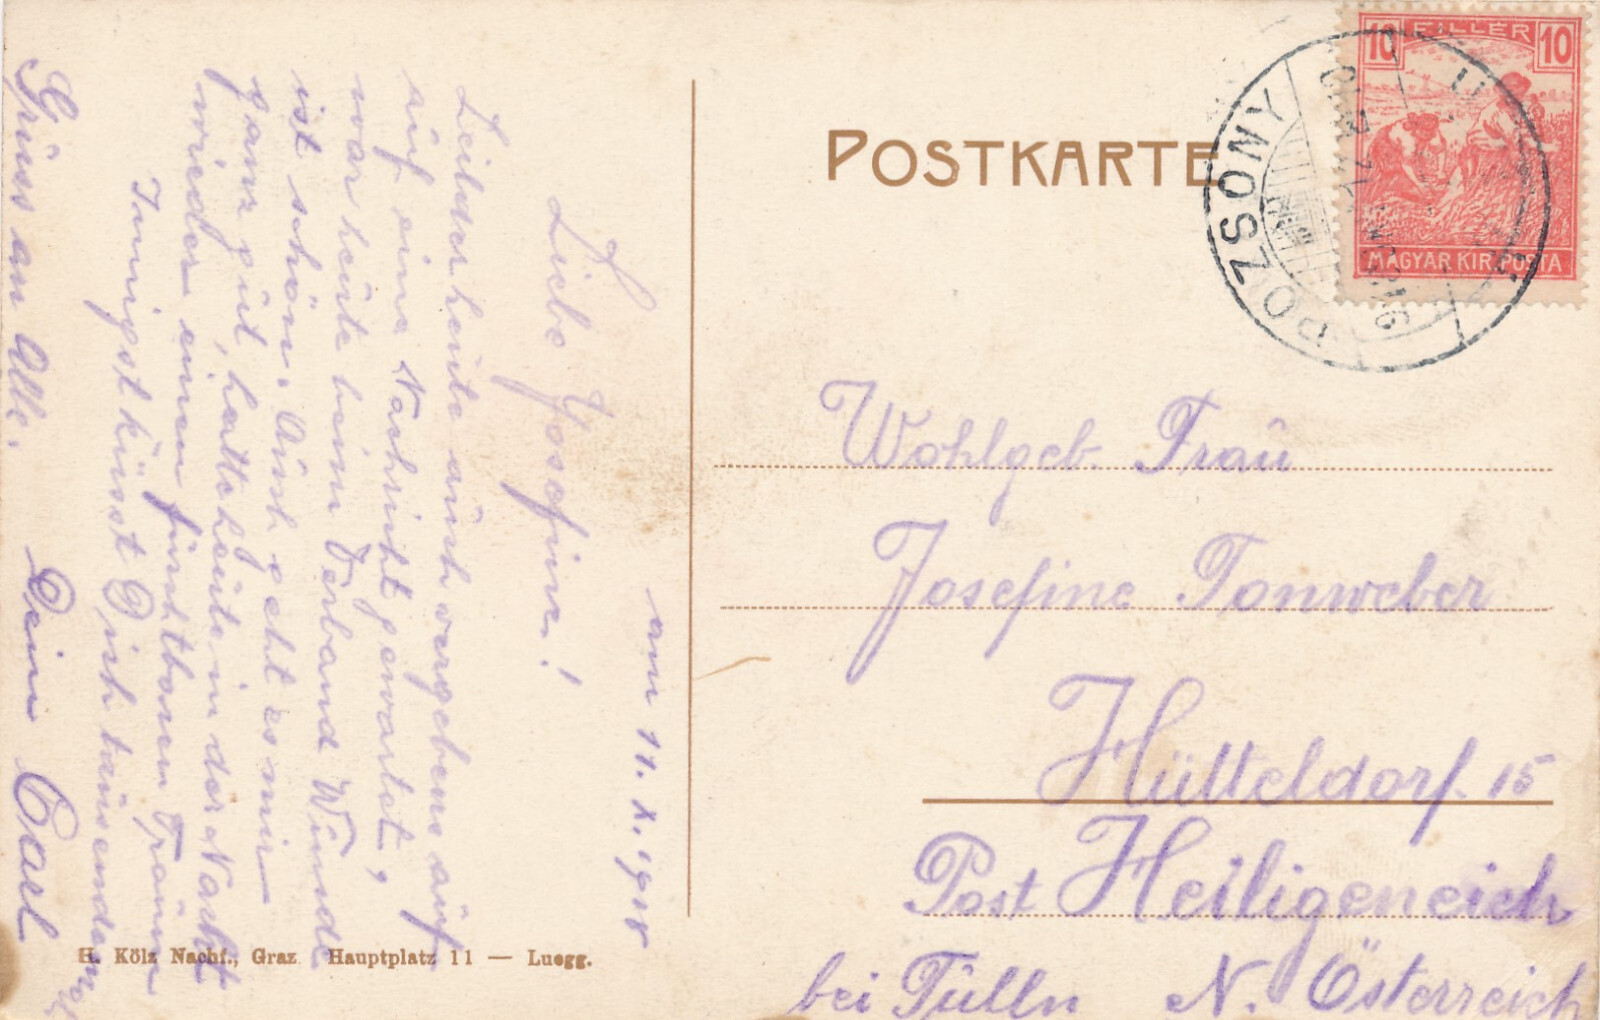 am 11. X. 1918
Liebe Josefine!
Leider heute auch vergebens auf
auf eine Nachricht gewartet,
war heute beim Verband Wunde
ist schön. Auch geht es mir
ganz gut, hatte heute in der Nacht
wieder einen furchtbaren Traum
Innigst küsst Dich tausendemal
Dein Carl
Gruss an Alle.
H. Kölz Nachf., Graz Hauptplatz 11 — Luegg.
POSTKARTE
10 FILLÉR 10
MAGYAR KIR. POSTA
POZSONY
Wohlgeb. Frau
Josefine Tonweber
Hütteldorf 15
Post Heiligeneich
bei Tulln N. Österreich